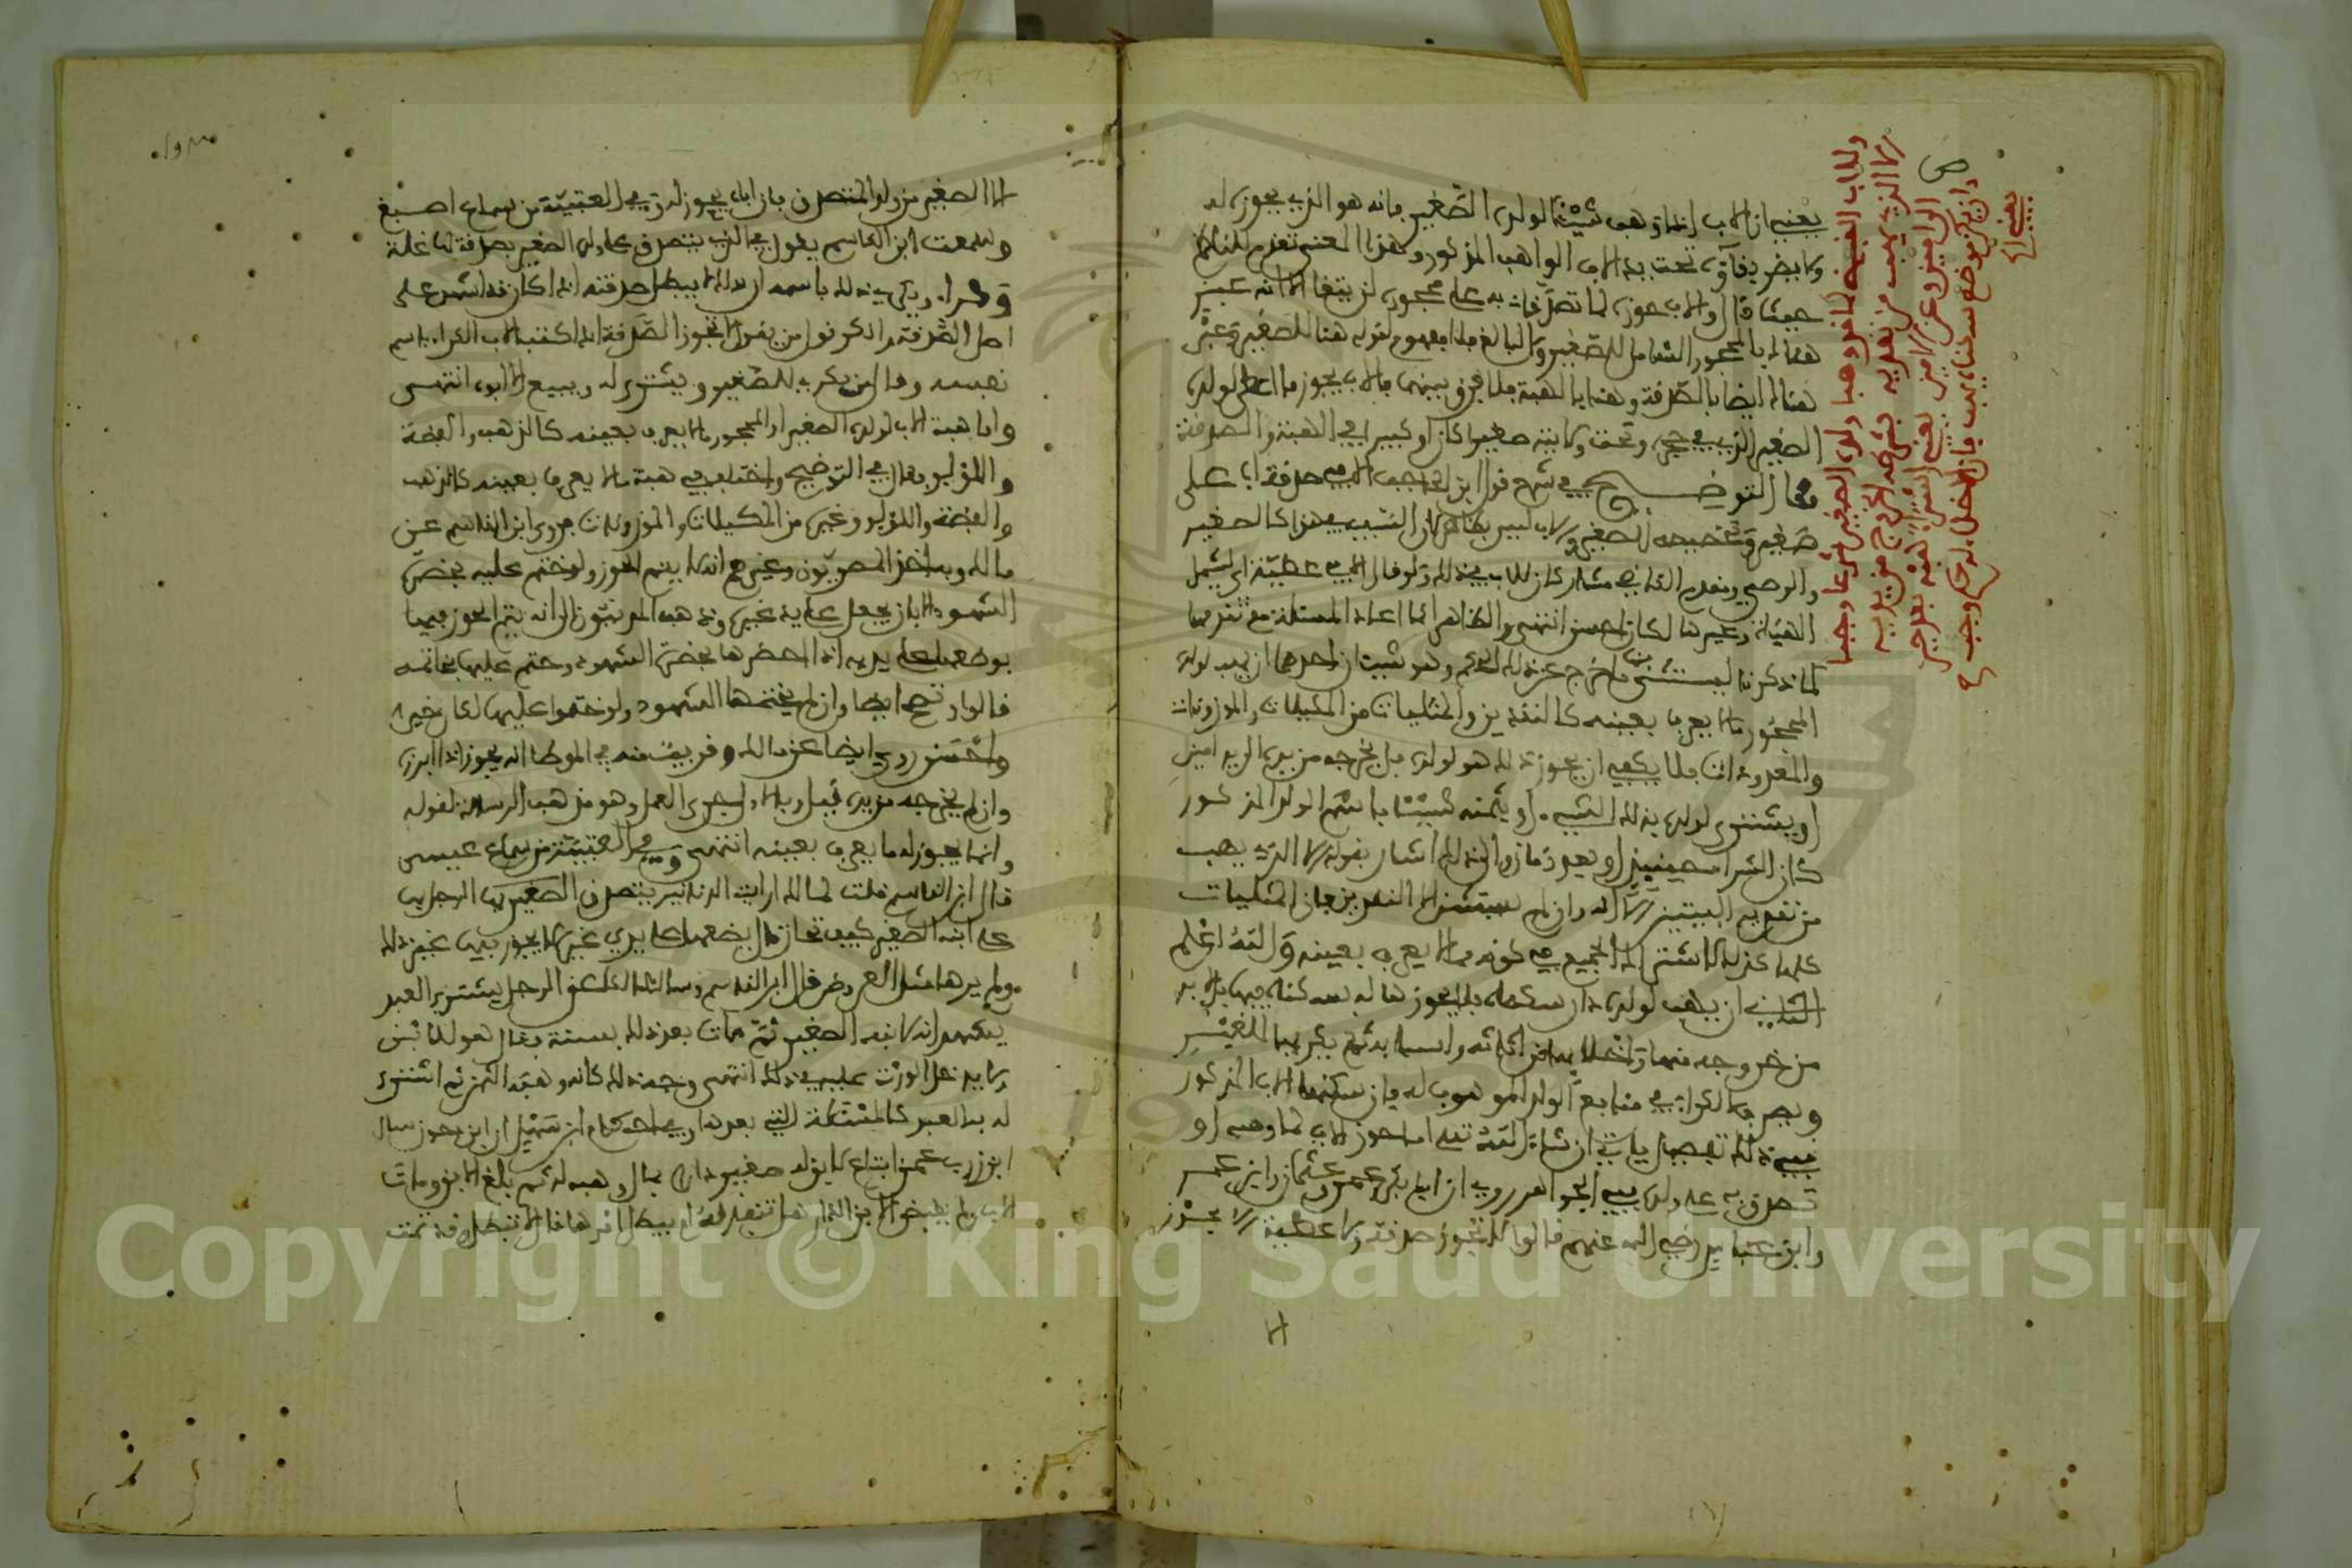 يعني ان الاب اذا وهب شيئا لولده الصغير فانه هو الذي يحوز له
ولا يضر بقاؤه تحت يد الاب الواهب المذكور وهذا المعنى تقدم للناظم
حيث قال والاب حوزه لما تصدقا به على محجوره لن يتقا الا انه عبر
هنالك بالمحجور الشامل للصغير والبالغ فلا مفهوم لقوله هنا للصغير وعبر
هنالك ايضا بالصدقة وهنا بالهبة فلا فرق بينهما فالاب يحوز ما اعطى لولده
الصغير الذي في حجره وتحت ولايته صغيرا كان او كبيرا في الهبة والصدقة
وقال التوضيح في شرح قول ابن الحاجب الا في صدقة اب على
صغير وتخصيصه الصغير والاب ليس بظاهر لان السفيه في هذا كالصغير
والوصي ومقدم القاضي مشارك للاب في ذلك ولو قال الا في عطية اي ليشمل
الهبة وغيرها لكان احسن انتهى والظاهر انما اعاد المسئلة مع تقدمها
كما ذكرنا ليستثني منها ما خرج عن ذلك الحكم وهو شيئان احدهما ان يهب لولده
المحجور ما لا يعرف بعينه كالنقدين والمثليات من المكيلات والموزونات
والمعدودات فلا يكفي ان يحوز ذلك هو لولده بل يخرجه من يده الى يد امين
او يشتري لولده بذلك الشيء او بثمنه شيئا باسم الولد المذكور
كان الشراء من اجنبي او يعود ما زاد الى ذلك اشار بقوله الا الذي يهب
من نقديه البيتين الا انه وان لم يستثن الا النقدين فان المثليات
كلها كذلك لاشتراك الجميع في كونه مما لا يعرف بعينه والله اعلم
الثاني ان يهب لولده دار سكناه فلا يحوزها له بسكناه فيها بل لا بد
من خروجه منها واخلائها من اثاثه واسبابه ثم يكريها للغير
ويصرف الكراء في منافع الولد الموهوب له فان سكنها الاب المذكور
ففي ذلك تفصيل ياتي ان شاء الله تعلى اما حوز الاب لما وهب او
تصدق به على ولده ففي الجواهر روي ان ابا بكر وعمر وعثمان وابن عمر
وابن عباس رضي الله عنهم قالوا لا تجوز صدقة ولا عطية الا بحوز
ص
وللاب القبض لما قد وهبا ولده الصغير شرعا وجبا
الا الذي يهب من نقديه فشرطه الخروج من يديه
الى امين وعن الامين يغني اشتراء هبه بعد حين
وان يكن موضع سكناه يهب فان الاخلاء له حكم وجب
الا الصغير من ولد المتصدق فان اباه يحوز له وفي العتبية من سماع اصبغ
وسمعت ابن القاسم يقول في الذي يتصدق على ولده الصغير بصدقة لها غلة
وكراء ويكري ذلك باسمه ان ذلك لا يبطل صدقته اذا كان قد اشهد على
اصل الصدقة وانكر قول من يقول لا تجوز الصدقة اذا اكتتب الاب الكراء باسم
نفسه وقال من يكري للصغير ويشتري له ويبيع الا ابوه انتهى
واما هبة الاب لولده الصغير او المحجور ما لا يعرف بعينه كالذهب والفضة
واللؤلؤ فقال في التوضيح واختلف في هبة ما لا يعرف بعينه كالذهب
والفضة واللؤلؤ وغيره من المكيلات والموزونات فروى ابن القاسم عن
مالك وبه اخذ المصريون وغيرهم انه لا يتم الحوز ولو ختم عليه بحضرة
الشهود الا بان يجعل على يد غيره وذهب المدنيون الى انه يتم الحوز فيها
بوضعها على يديه اذا احضرها بحضرة الشهود وختم عليها بخاتمه
قالوا وتصح ايضا وان لم يختمها الشهود ولو ختموا عليها لكان خيرا
واحسن روي ايضا عن مالك وقريب منه في الموطا انه يجوز اذا ابرزه
وان لم يخرجه من يده قيل وبالاول جرى العمل وهو مذهب الرسالة لقوله
وانما يحوز له ما يعرف بعينه انتهى وفي العتبية من سماع عيسى
قال ابن القاسم قلت لمالك ارايت الدنانير يتصدق بها الرجل
على ابنه الصغير كيف تحاز قال يضعها على يدي غيره لا يحوز فيها غير ذلك
ولم يرها مثل العروض قال ابن القاسم وسالت مالكا عن الرجل يشتري العبد
يشهد انه لابنه الصغير ثم مات بعد ذلك بسنة فقال هو للابن
ولا يدخل الورثة عليه في ذلك انتهى وجه ذلك كانه وهبه الثمن ثم اشترى
له به العبد كالمسئلة التي بعدها وفي احكام ابن سهل ان ابن حوز سال
ابن زرب عمن ابتاع لابنه صغير دارا بمال وهبه له ثم بلغ الابن ومات
الاب ولم يقبض الابن الدار هل تنفذ له ام يبطل امرها فقال لا تبطل وقد تمت